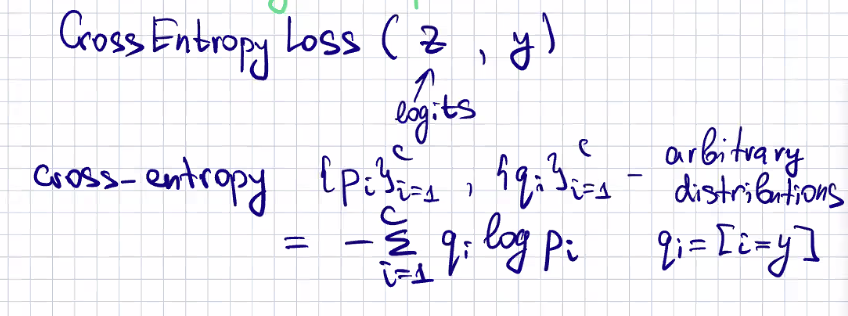 CrossEntropy Loss ( z , y )
↑
logits
cross-entropy {pᵢ}ᵢ₌₁ᶜ , {qᵢ}ᵢ₌₁ᶜ - arbitrary distributions
= - Σᵢ₌₁ᶜ qᵢ log pᵢ qᵢ = [i=y]